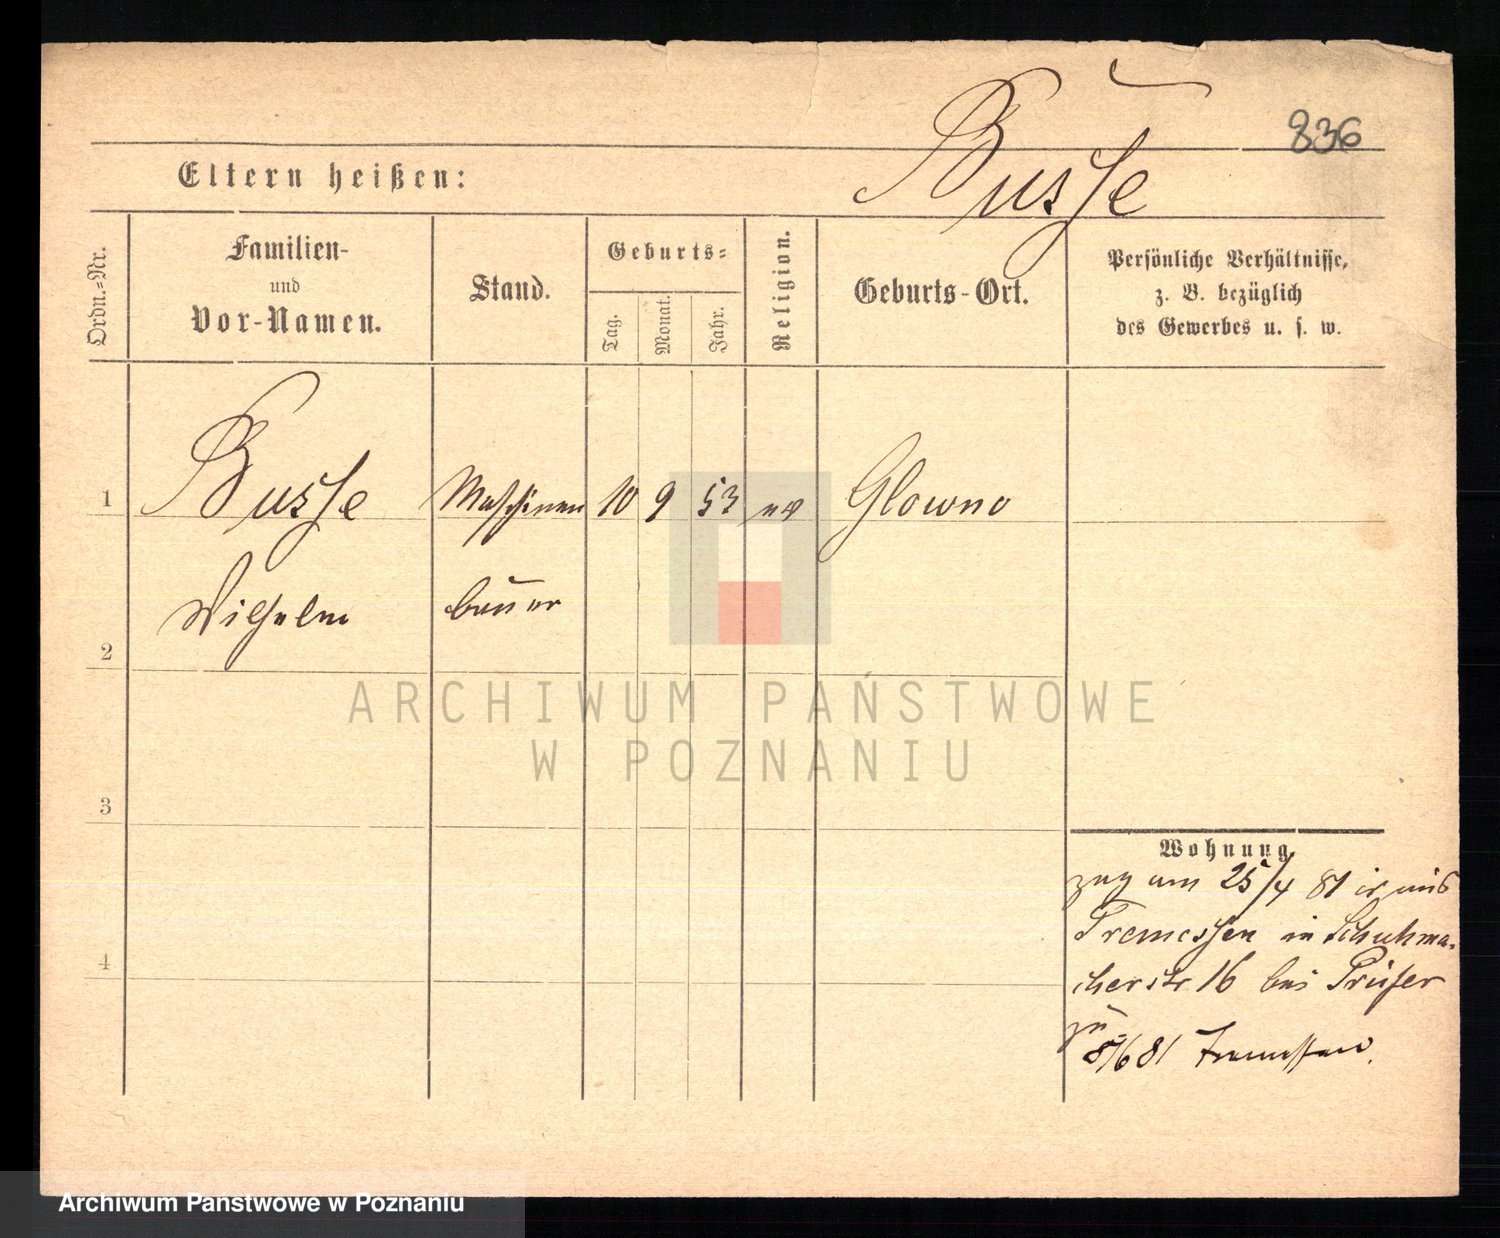 836
Busse
Eltern heißen:
Ordn.-Nr.
Familien-
und
Vor-Namen.
Stand.
Geburts-
Tag.
Monat.
Jahr.
Religion.
Geburts-Ort.
Persönliche Verhältnisse,
z. B. bezüglich
des Gewerbes u. s. w.
1
Busse
Maschinen
10
9
53
ev
Glowno
Wilhelm
bauer
2
ARCHIWUM PAŃSTWOWE
W POZNANIU
3
Wohnung.
zug am 25/4 81 aus
Tremessen in Schuhma-
cherstr 16 bei Prüfer
zu
4
8/6 81 Tremessen.
Archiwum Państwowe w Poznaniu